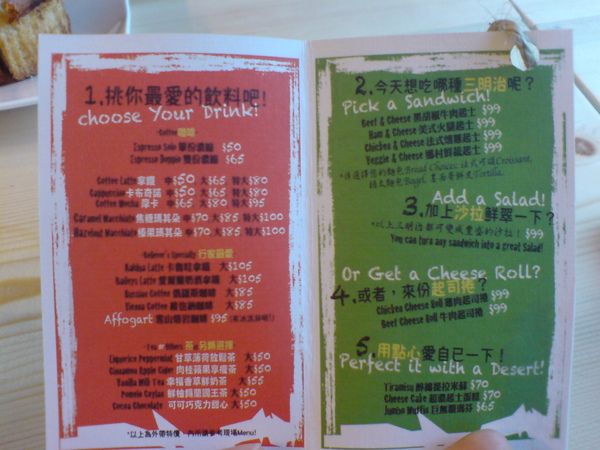 1.挑你最愛的飲料吧!
choose Your Drink!
-Coffee咖啡-
Espresso Solo 單份濃縮 $50
Espresso Doppio 雙份濃縮 $65
Coffee Latte 拿鐵 中$50 大$65 特大$80
Cappuccino 卡布奇諾 中$50 大$65 特大$80
Coffee Mocha 摩卡 中$65 大$80 特大$95
Caramel Macchiato 焦糖瑪其朵 中$70 大$85 特大$100
Hazelnut Macchiato 榛果瑪其朵 中$70 大$85 特大$100
-Believer's Specialty 行家最愛-
Kahlua Latte 卡魯哇拿鐵 大$105
Baileys Latte 拿鐵 大$105
Russian Coffee 俄羅斯咖啡 大$85
Vienna Coffee 維也納咖啡 大$85
Affogart 雪山咖啡 $95
-Tea & Others 茶·另類選擇-
Liquorice Peppermint 甘草薄荷放鬆茶 大$50
Cinnamon Apple Cider 肉桂蘋果享瘦茶 大$50
Vanilla Milk Tea 幸福香草鮮奶茶 大$55
Pomelo Ceylan 鮮柚錫蘭國王茶 大$50
Cocoa Chocolate 可可巧克力甜心 大$50
*以上為外帶特價，內用請參考現場Menu!
2.今天想吃哪種三明治呢？
Pick a Sandwich!
Beef & Cheese 黑胡椒牛肉起士 $99
Ham & Cheese 美式火腿起士 $99
Chicken & Cheese 法式燻雞起士 $99
Veggie & Cheese 鄉村鮮蔬起士 $99
*請選擇您的麵包Bread Choice: 法式可頌Croissant,
貝果麵包Bagel, 墨西哥餅皮Tortilla.
Add a Salad!
3.加上沙拉鮮翠一下？
*以上三明治都可變成豐盛的沙拉！ $99
You can turn any sandwich into a great Salad!
Or Get a Cheese Roll?
4.或者，來份起司捲？
Chicken Cheese Roll 雞肉起司捲 $99
Beef Cheese Roll 牛肉起司捲 $99
5.用點心愛自己一下！
Perfect it with a Desert!
Tiramisu 醇綿提拉米蘇 $70
Cheese Cake 超濃起士蛋糕 $70
Jumbo Muffin 巨無霸瑪芬 $65